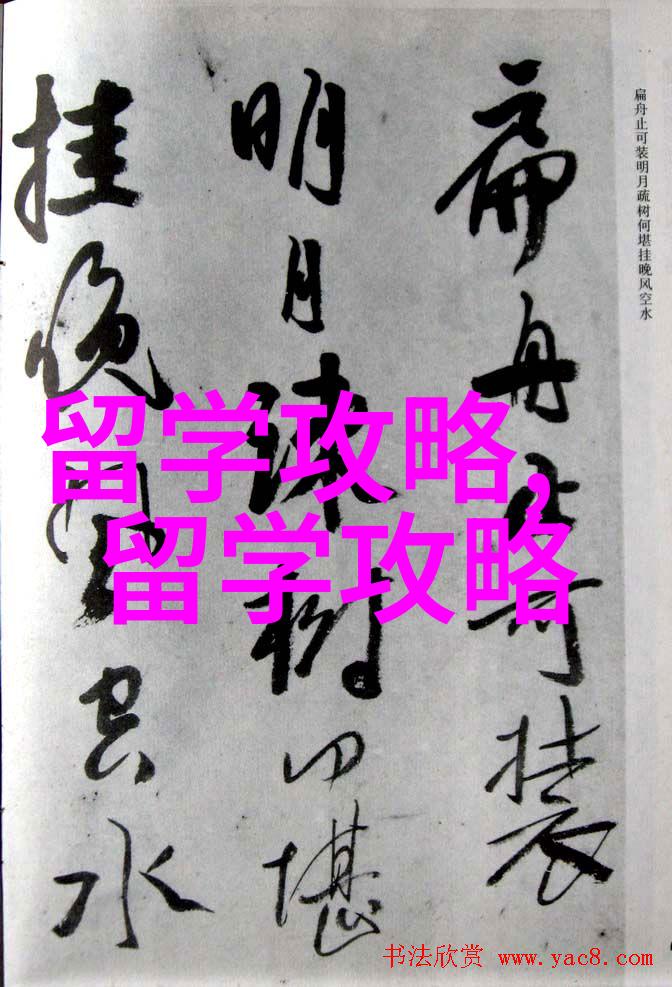 扁舟止可装明月疏树何堪挂晚风空水
扁舟止可装
明月疏树何堪
挂晚风空水
留学攻略,
留学攻略
书法欣赏 www.yac8.com